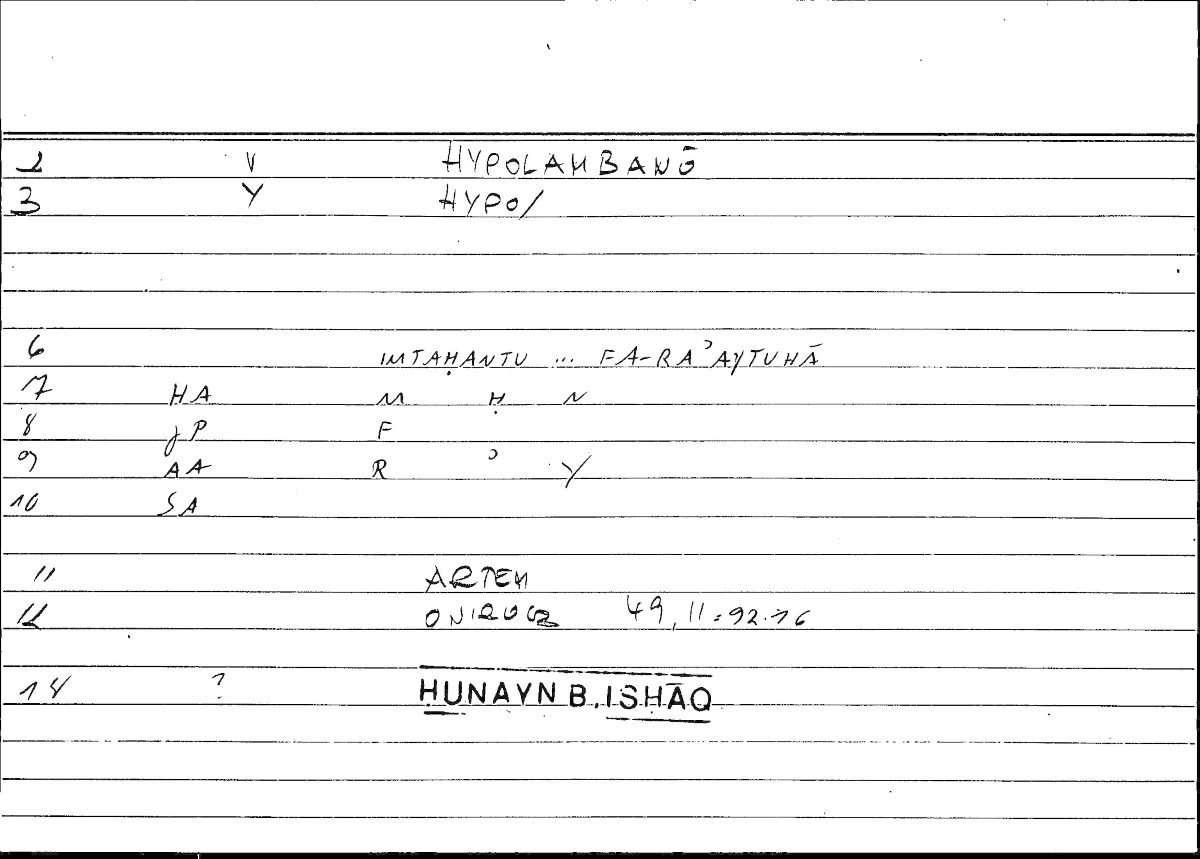 2 V HYPOLAMBANŌ
3 Y HYPO/
6 IMTAḤANTU ... FA-RAʾAYTUHĀ
7 HA M Ḥ N
8 JP F
9 AA R ʾ Y
10 SA
11 ARTEM
12 ONIROCR 49,11=92.16
14 ? ḤUNAYN B. ISḤĀQ